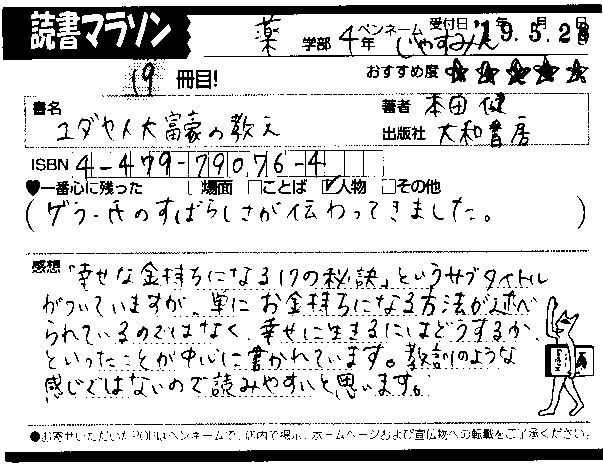 読書マラソン
薬 学部 4年 ペンネーム じゃすみん 受付日 '19年5月2日
19 冊目! おすすめ度 ★★★★★
書名 ユダヤ人大富豪の教え
著者 本田 健
出版社 大和書房
ISBN 4-479-79076-4
♥一番心に残った □場面 □ことば ☑人物 □その他
(ゲラー氏のすばらしさが伝わってきました。)
感想 「幸せな金持ちになる17の秘訣」というサブタイトル
がついていますが、単にお金持ちになる方法が述べ
られているのではなく、幸せに生きるにはどうするか、
といったことが中心に書かれています。教訓のような
感じではないので読みやすいと思います。
●お寄せいただいたPOPはペンネームで、店内で掲示、ホームページおよび宣伝物への転載をご了承ください。